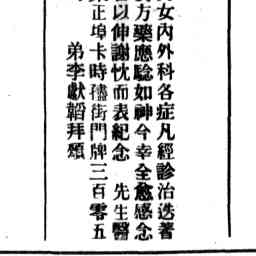 女內外科各症凡經診治迭著
方藥應驗如神今幸全愈感念
以伸謝忱而表紀念　先生醫
正埠卡時街門牌三百零五
弟李獻韜拜頌